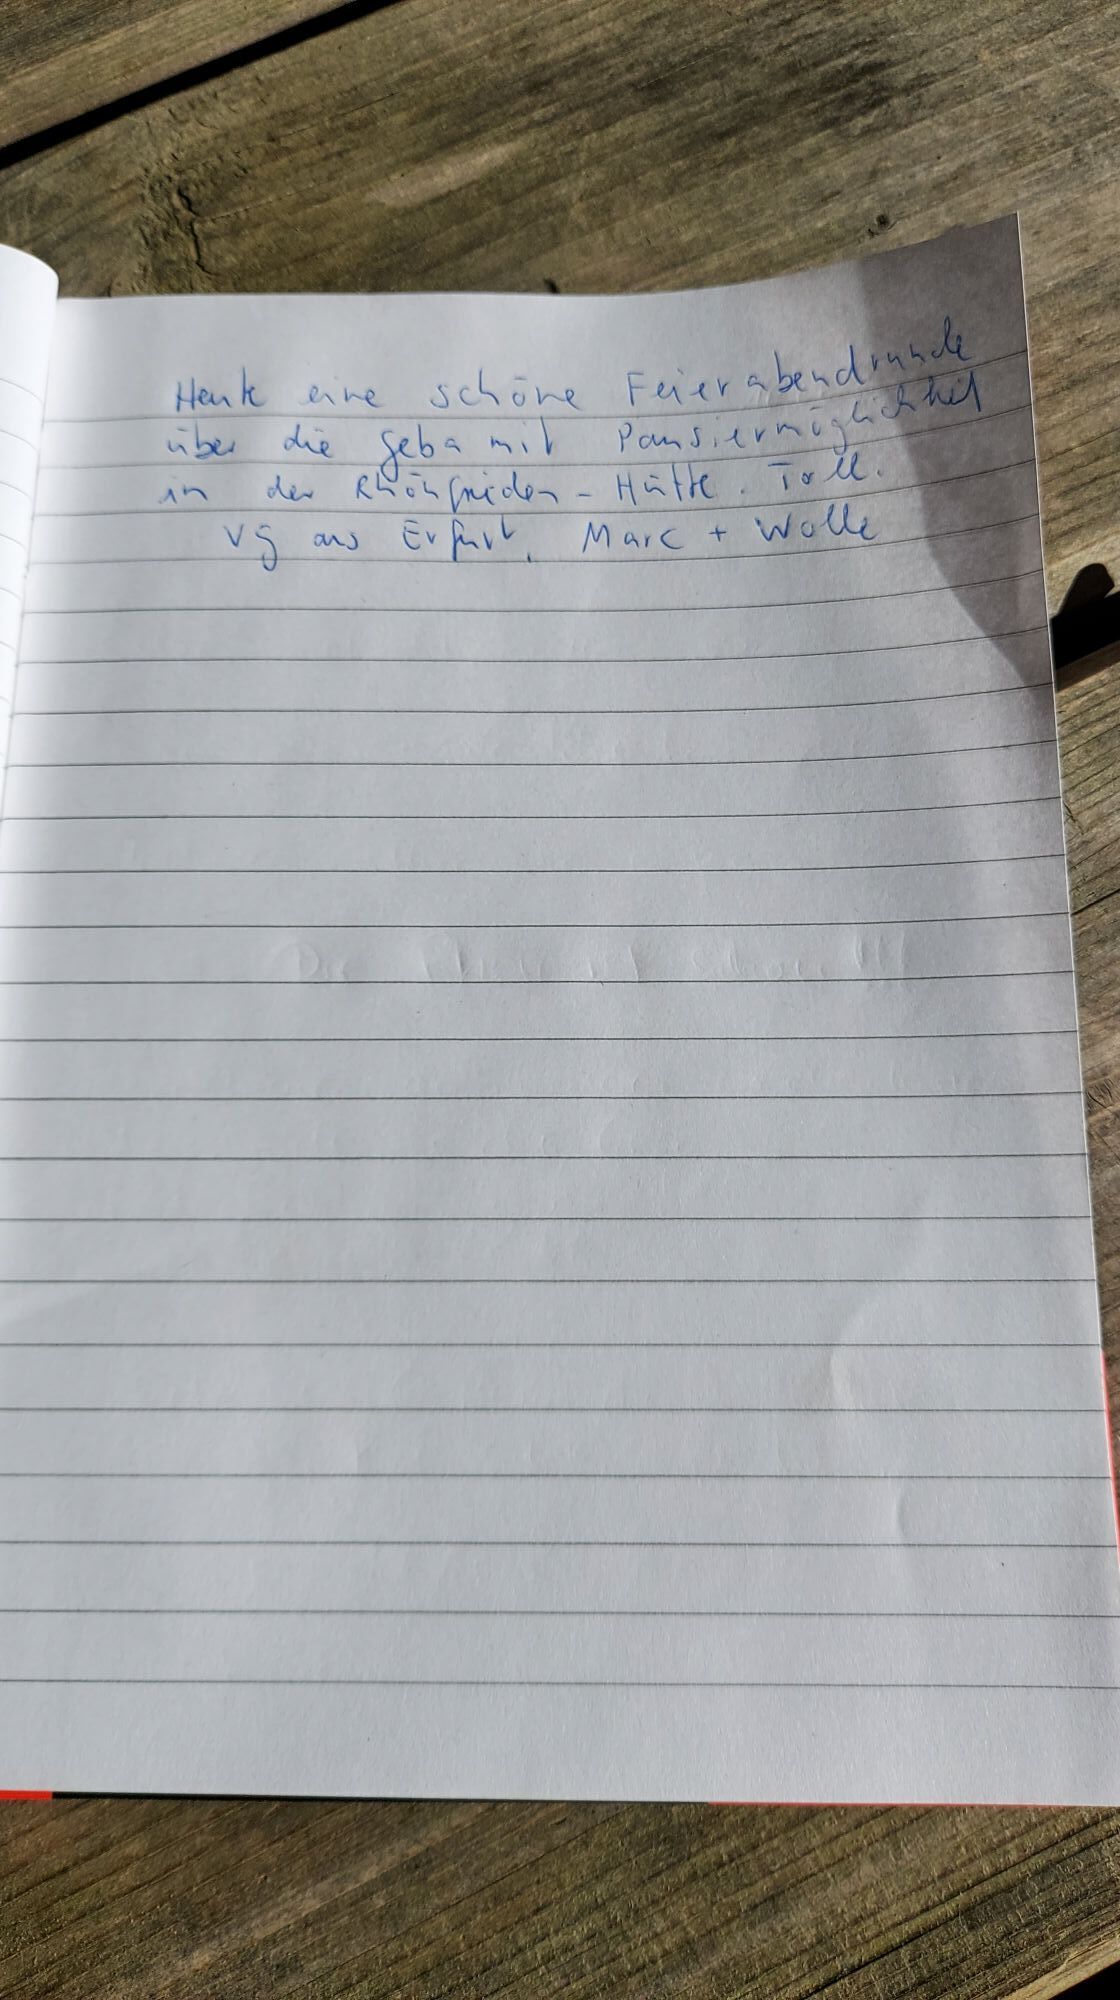 Heute eine schöne Feierabendrunde
über die Geba mit Pausiermöglichkeit
in der Rhönfrieden-Hütte. Toll.
VG aus Erfurt, Marc + Wolle